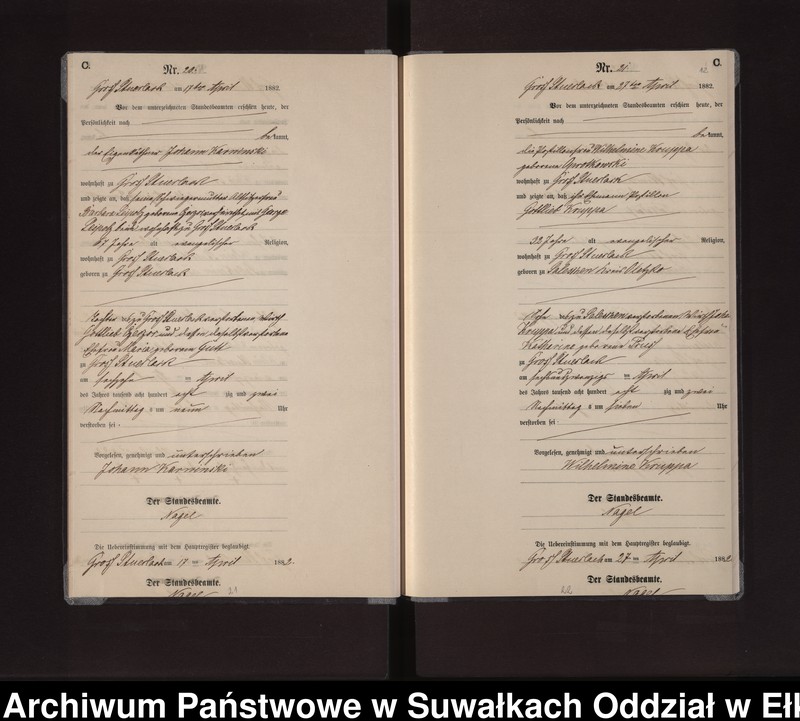 C.
Nr. 20.
Groß Stuerlack am 17ten April 1882.
Vor dem unterzeichneten Standesbeamten erschien heute, der
Persönlichkeit nach
be kannt,
der Eigenkäthner Johann Karminski
wohnhaft zu Groß Stuerlack
und zeigte an, daß seine Schwiegermutter
Barbara geborene
wohnhaft zu Groß Stuerlack
67 Jahre alt evangelischer Religion,
wohnhaft zu Groß Stuerlack
geboren zu Groß Stuerlack
Tochter des zu Groß Stuerlack verstorbenen
Gottlieb und dessen daselbst verstorbenen
Ehefrau Maria geborenen
zu Groß Stuerlack
am sechszehn ten April
des Jahres tausend acht hundert acht zig und zwei
Nachmittag s um neun Uhr
verstorben sei
Vorgelesen, genehmigt und unterschrieben
Johann Karminski
Der Standesbeamte.
Nagel
Die Uebereinstimmung mit dem Hauptregister beglaubigt.
Groß Stuerlack am 17 ten April 1882.
Der Standesbeamte.
Nagel
21
C.
Nr. 21.
Groß Stuerlack am 27ten April 1882.
Vor dem unterzeichneten Standesbeamten erschien heute, der
Persönlichkeit nach
be kannt,
die Wilhelmine Kruppa
geborene
wohnhaft zu Groß Stuerlack
und zeigte an, daß ihr Ehemann
Gottlieb Kruppa
32 Jahre alt evangelischer Religion,
wohnhaft zu Groß Stuerlack
geboren zu Kreis Oletzko
Sohn des zu verstorbenen
Kruppa und dessen daselbst verstorbenen Ehefrau
Katharine geborene
zu Groß Stuerlack
am sechsundzwanzigs ten April
des Jahres tausend acht hundert acht zig und zwei
Nachmittag s um sieben Uhr
verstorben sei
Vorgelesen, genehmigt und unterschrieben
Wilhelmine Kruppa
Der Standesbeamte.
Nagel
Die Uebereinstimmung mit dem Hauptregister beglaubigt.
Groß Stuerlack am 27 ten April 1882
Der Standesbeamte.
Nagel
Archiwum Państwowe w Suwałkach Oddział w Ełk